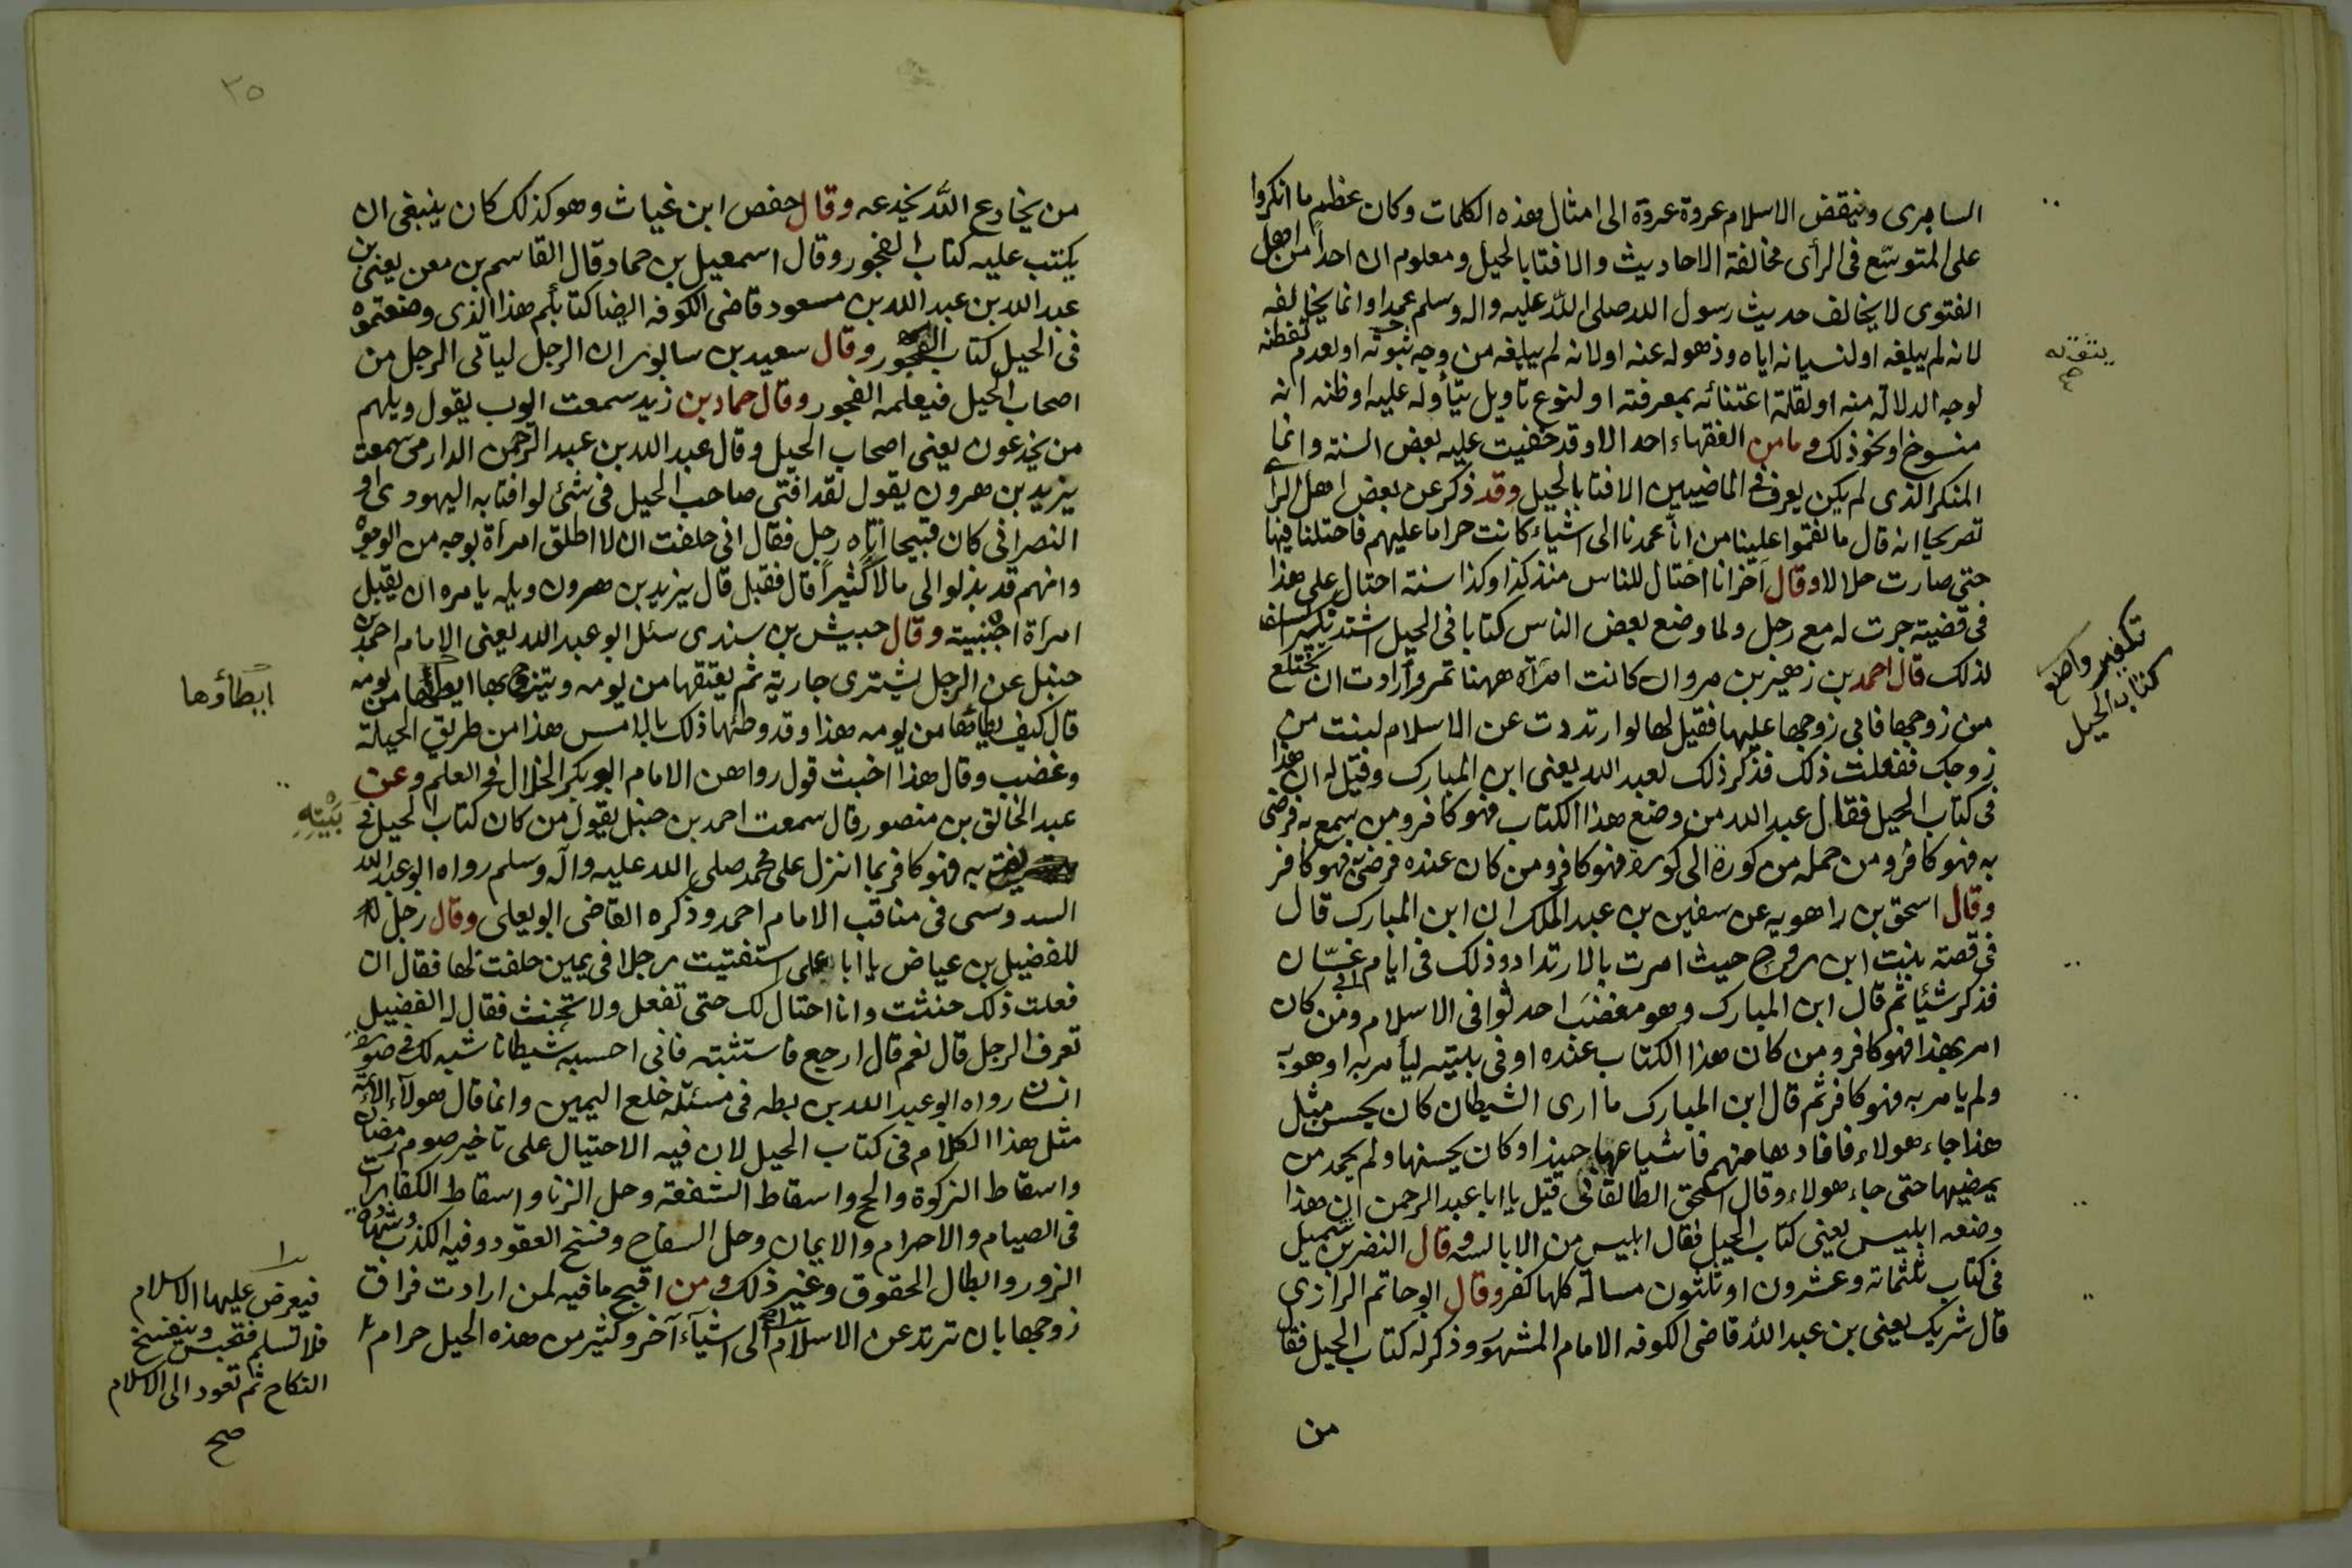 السامرى وينقض الاسلام عروة عروة الى امثال هذه الكلمات وكان عظيم ما انكروا
على المتوسّع فى الرأى مخالفة الاحاديث والافتا بالحيل ومعلوم ان احداً من اهل
الفتوى لا يخالف حديث رسول الله صلى اللّه عليه واله وسلم عمدا وانما يخالفه
لانه لم يبلغه او لنسيانه اياه وذهوله عنه او لانه لم يبلغه من وجه يثق به او لعدم تفطنه
لوجه الدلالة منه او لقلة اعتنائه بمعرفته او لنوع تاويل يتأوله عليه او ظنه انه
منسوخ او نحو ذلك وما من الفقهاء احد الا وقد خفيت عليه بعض السنة وانما
المنكر الذى لم يكن يعرف فى الماضيين الافتا بالحيل وقد ذكر عن بعض اهل الرأى
تصريحا انه قال ما نقموا علينا من انّا عمدنا الى اشياء كانت حراما عليهم فاحتلنا فيها
حتى صارت حلالا وقال آخر انا احتال للناس منذ كذا وكذا سنة احتال على هذا
فى قضية جرت له مع رجل ولما وضع بعض الناس كتابا فى الحيل اشتد نكير السلف
لذلك قال احمد بن زهير بن مروان كانت امرأة ههنا تمرو أرادت ان تختلع
من زوجها فابى زوجها عليها فقيل لها لو ارتددت عن الاسلام لبنت من
زوجك ففعلت ذلك فذكر ذلك لعبد الله يعنى ابن المبارك وقيل له ان هذا
فى كتاب الحيل فقال عبد الله من وضع هذا الكتاب فهو كافر ومن سمع به فرضى
به فهو كافر ومن حمله من كورة الى كورة فهو كافر ومن كان عنده فرضى به فهو كافر
وقال اسحق بن راهويه عن سفين بن عبد الملك ان ابن المبارك قال
فى قصة بنت ابى روح حيث امرت بالارتداد وذلك فى ايام ابى غسّان
فذكر شيئا ثم قال ابن المبارك وهو مغضب احدثوا فى الاسلام ومن كان
امر بهذا فهو كافر ومن كان هذا الكتاب عنده او فى بيته ليأمر به او هويه
ولم يامر به فهو كافر ثم قال ابن المبارك ما ارى الشيطان كان يحسن مثل
هذا جاء هولاء فافادها منهم فاشياعها حينذ او كان يحسنها ولم يجد من
يمضيها حتى جاء هولاء وقال اسحق الطالقانى قيل يا ابا عبد الرحمن ان هذا
وضعه ابليس يعنى كتاب الحيل فقال ابليس من الابالسه وقال النضر بن شميل
فى كتاب ثلثمائة وعشرون او ثلثون مسالة كلها كفر وقال ابو حاتم الرازى
قال شريك يعنى بن عبد اللّه قاضى الكوفه الامام المشهور وذكر له كتاب الحيل فقال
من
يثق به
تكفير واضع
كتاب الحيل
٣٥
من يخادع اللّه يخدعه وقال حفص ابن غياث وهو كذلك كان ينبغى ان
يكتب عليه كتاب الفجور وقال اسمعيل بن حماد قال القاسم بن معن يعنى بن
عبد الله بن عبد الله بن مسعود قاضى الكوفه ايضا كتابكم هذا الذى وضعتموه
فى الحيل كتاب الفجور وقال سعيد بن سابور ان الرجل لياتى الرجل من
اصحاب الحيل فيعلمه الفجور وقال حماد بن زيد سمعت ايوب يقول ويلهم
من يخدعون يعنى اصحاب الحيل وقال عبد الله بن عبد الرّحمن الدارمى سمعت
يزيد بن هرون يقول لقد افتى صاحب الحيل فى شئ لو افتا به اليهودى او
النصرانى كان قبيحا اتاه رجل فقال انى حلفت ان لا اطلق امرأة بوجه من الوجوه
وانهم قد بذلوا لى مالاً كثيراً قال فقبل قال يزيد بن هرون ويله يامره ان يقبل
امرأة اجنبية وقال حبيش بن سندى سئل ابو عبد الله يعنى الامام احمد بن
حنبل عن الرجل يشترى جارية ثم يعتقها من يومه ويتزوج بها ايطأها من يومه
قال كيف يطاءها من يومه هذا وقد وطئها ذلك بالامس هذا من طريق الحيلة
وغضب وقال هذا اخبث قول رواهن الامام ابو بكر الخلال فى العلم وعن
عبد الخالق بن منصور قال سمعت احمد بن حنبل يقول من كان كتاب الحيل فى
يفتى به فهو كافر بما انزل على محمد صلى الله عليه وآله وسلم رواه ابو عبد الله
السدوسى فى مناقب الامام احمد وذكره القاضى ابو يعلى وقال رجل
للفضيل بن عياض يا ابا على استفتيت رجلا فى يمين حلفت لها فقال ان
فعلت ذلك حنثت وانا احتال لك حتى تفعل ولا تحنث فقال له الفضيل
تعرف الرجل قال نعم قال ارجع فاستثبته فانى احسبه شيطانا شبه لك فى صورة
انسان رواه ابو عبد الله بن بطه فى مسئلة خلع اليمين وانما قال هولآء الائمة
مثل هذا الكلام فى كتاب الحيل لان فيه الاحتيال على تاخير صوم رمضان
واسقاط الزكوة والحج واسقاط الشفعة وحل الزنا واسقاط الكفارات
فى الصيام والاحرام والايمان وحل السفاح وفسخ العقود وفيه الكذب وشهادة
الزور وابطال الحقوق وغير ذلك ومن اقبح ما فيه لمن ارادت فراق
زوجها بان ترتد عن الاسلام الى اشيآء آخر وكثير من هذه الحيل حرام
ايطاؤها
بَيْتِهِ
فيعرض عليها الاسلام
فلا تسلم فتحبس وينفسخ
النكاح ثم تعود الى الاسلام
صح